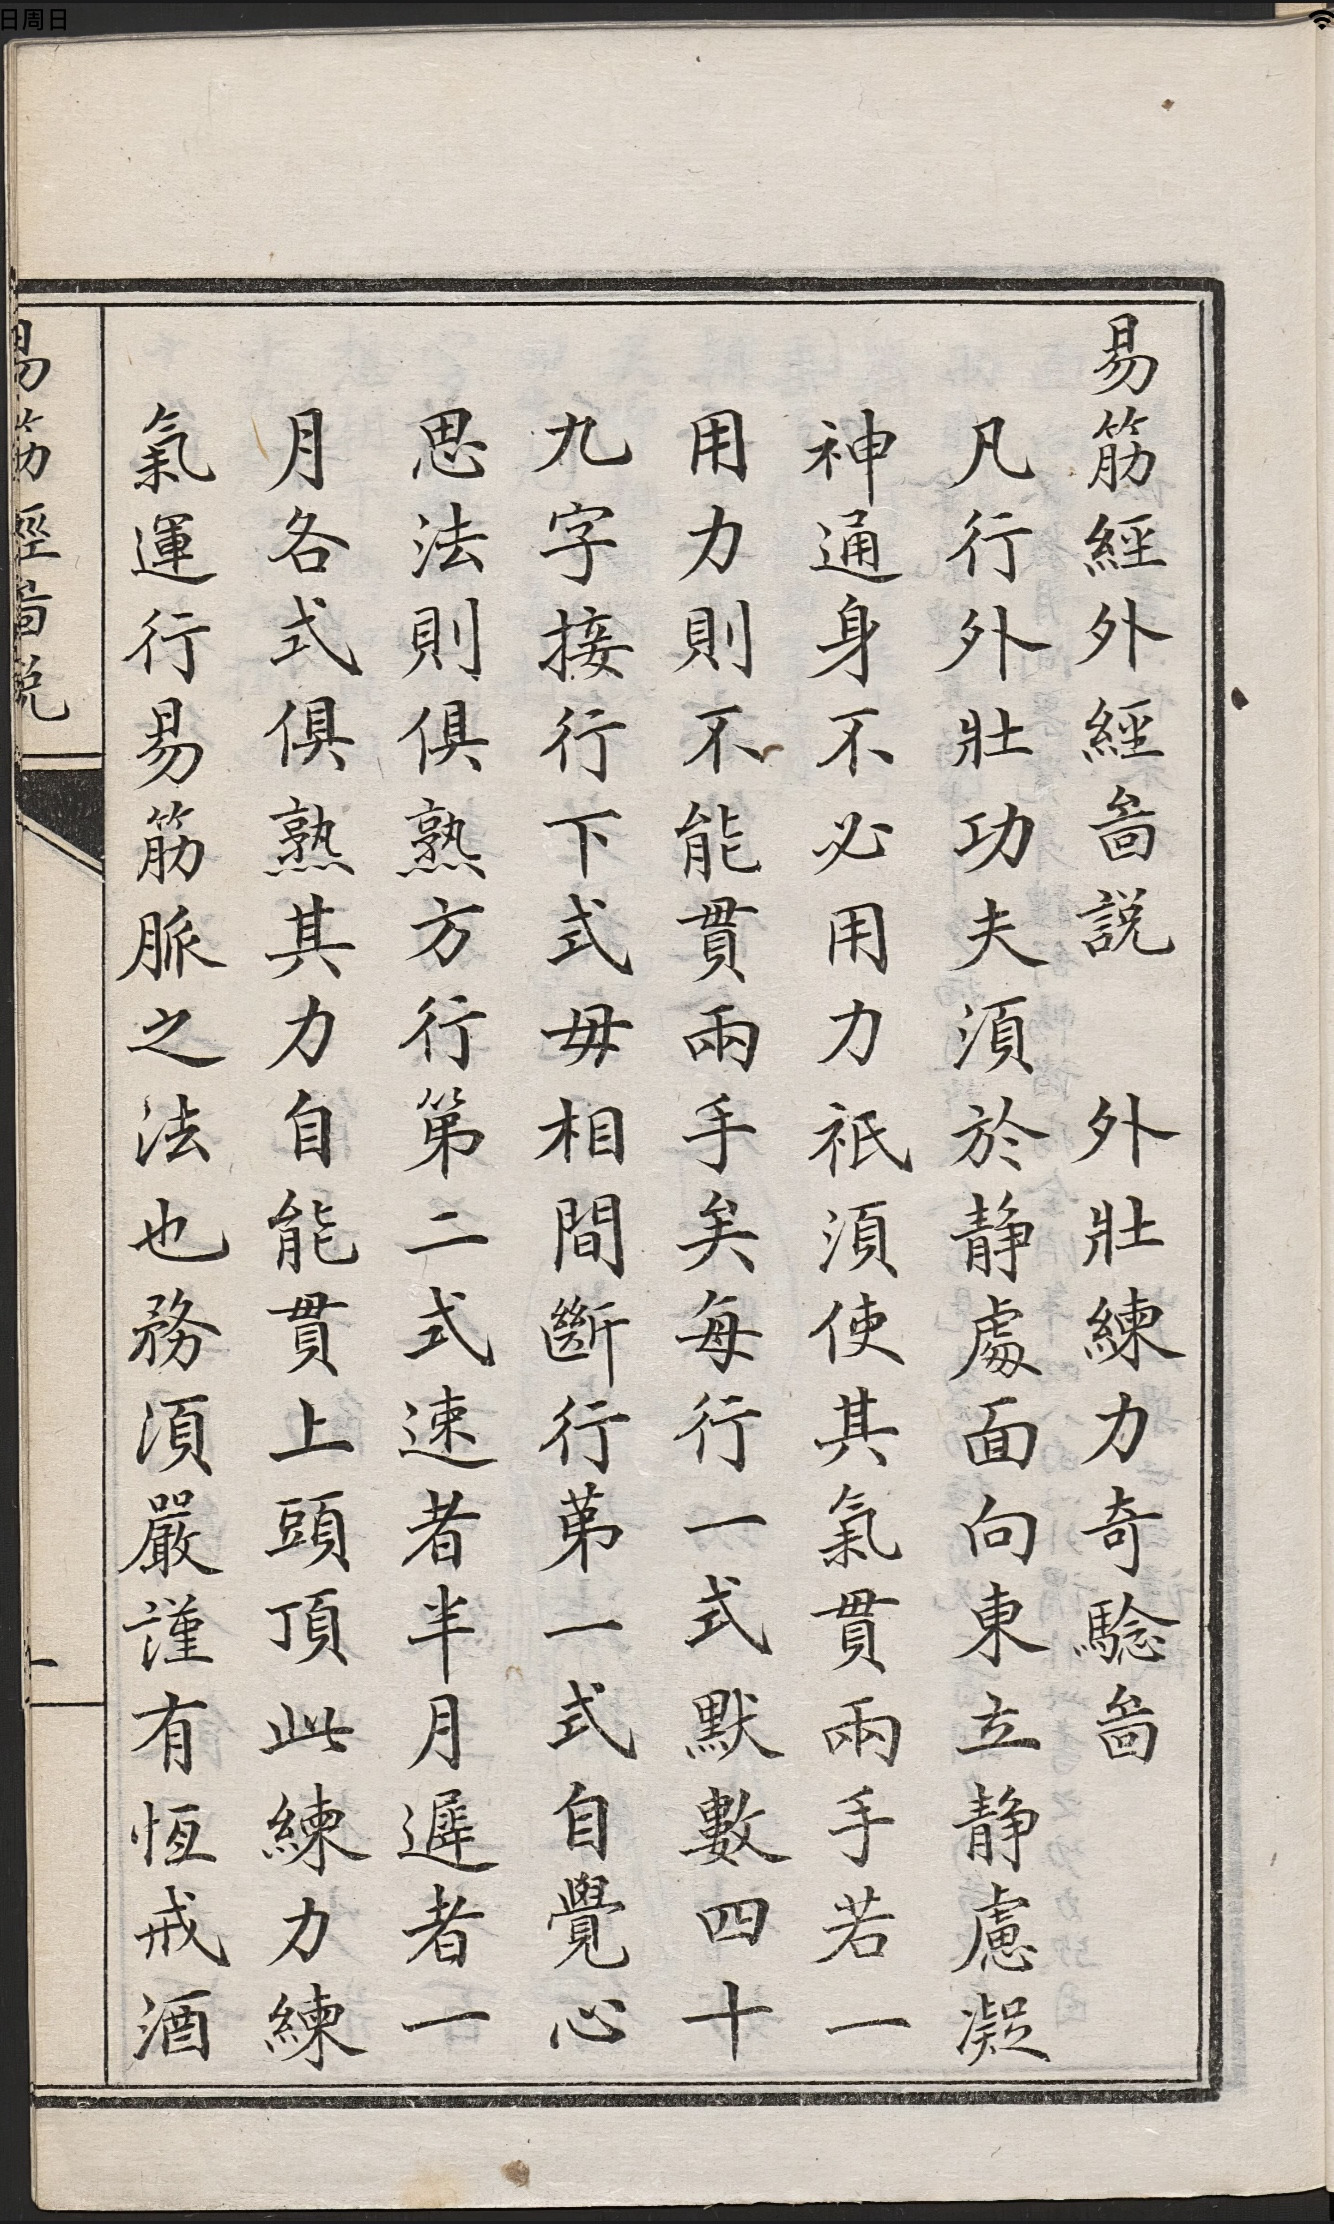 易筋經外經啚説　外壯練力奇騐啚
凡行外壯功夫湏於静處面向東立静慮凝
神通身不必用力祇湏使其氣貫兩手若一
用力則不能貫兩手矣每行一式默數四十
九字接行下式毋相間斷行苐一式自覺心
思法則俱熟方行第二式速者半月遲者一
月各式俱熟其力自能貫上頭頂此練力練
氣運行易筋脈之法也務湏嚴謹有恆戒酒
易筋經啚説
一
日周日